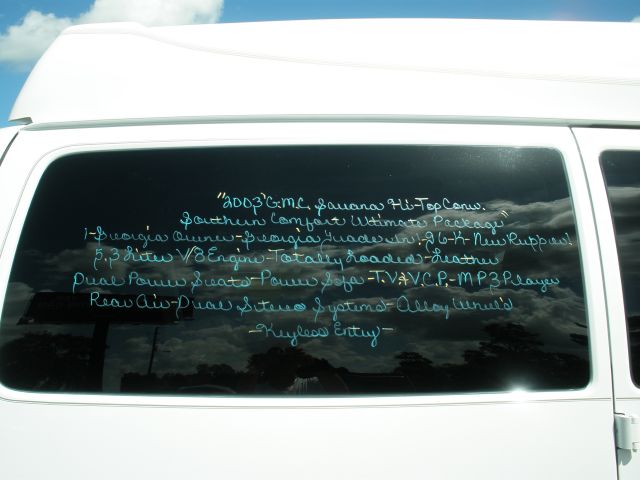 "2003" G.M.C. Savana Hi-Top Conv.
Southern Comfort Ultimate Package"
1-Georgia Owner-Georgia Trade in! - 26-K-New Rubber!
5,3 Liter V/8 Engine-Totally Loaded-Leather
Dual Power Seats-Power Sofa-T.V.&V.C.P.-MP3 Player
Rear Air-Dual Stereo Systems-Alloy Wheel's
-Keyless Entry-